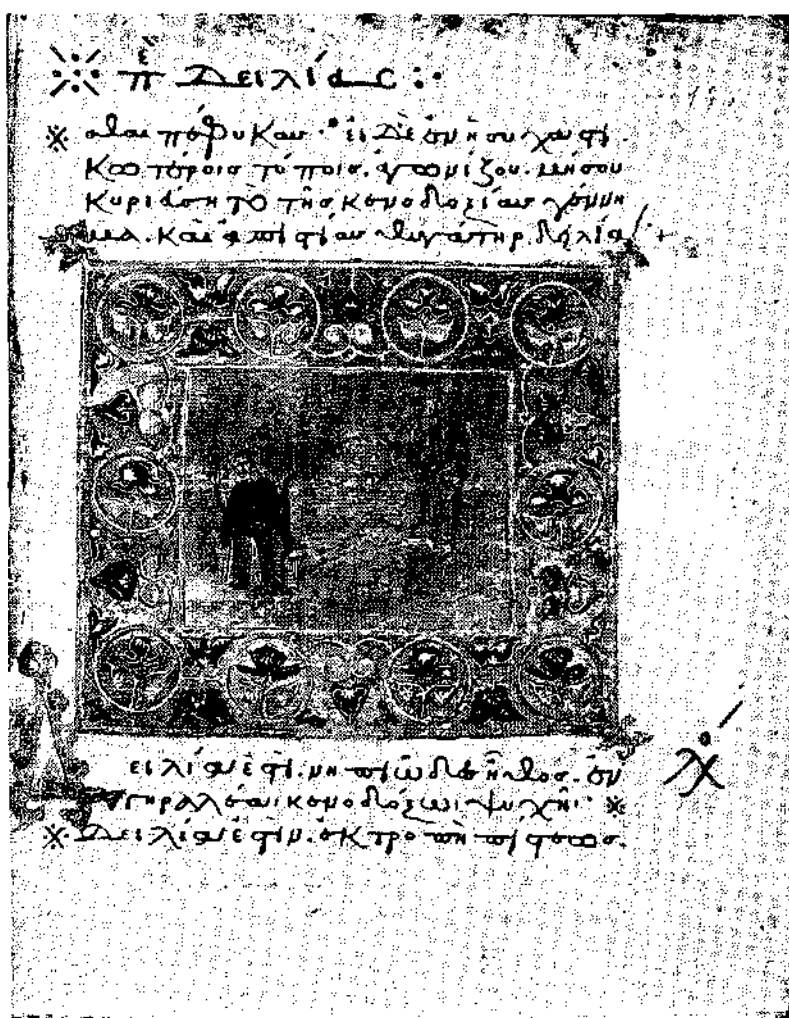 π̅ὲ Δειλίας :·
σθαι πέφυκεν · εἰ δὲ ἐν ἡσυχαστι
κωτέροις τόποις. ἀγωνίζου. μή σου
κυριεύση τὸ τῆς κενοδοξίας γέννη
μα. καὶ ἀπιστίας θυγάτηρ. δηλία
Δειλία ἐστὶ. νηπιῶδες ἦθος. ἐν
γηραλέαι κενοδόξωι ψυχῆι
Δειλία ἐστὶν. ἐκτροπὴ πίστεως.